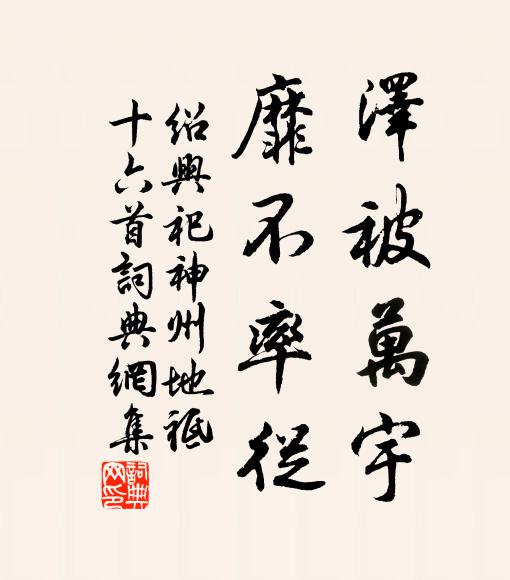 澤被萬宇
靡不率從
紹興祀神州地祗
十六首詞典網集
詞典網印